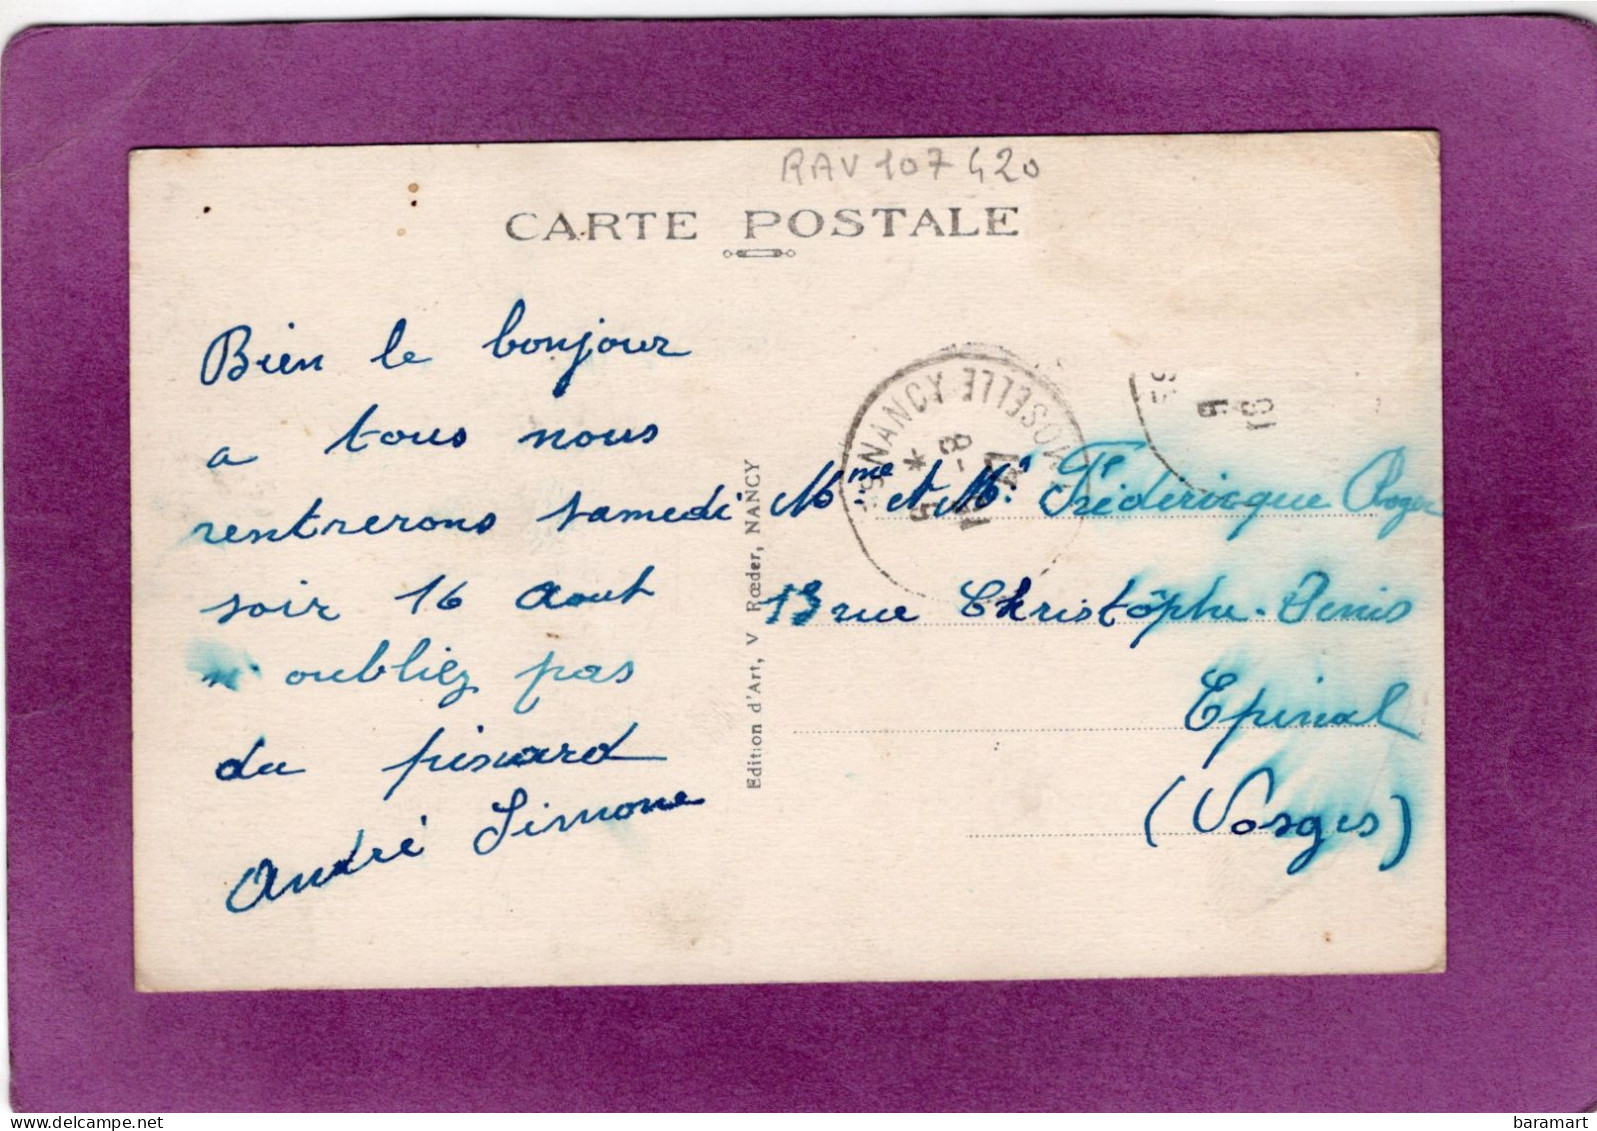 RAV 107 420
CARTE POSTALE
Bien le bonjour
a tous nous
rentrerons samedi
soir 16 Aout
n'oubliez pas
du pinard
André Simone
Edition d'Art, V Rœder, NANCY
NANCY
MOSELLE
Mme et Mr Fréderisque Roger
13 rue Christôphe-Denis
Epinal
(Vosges)
baramart